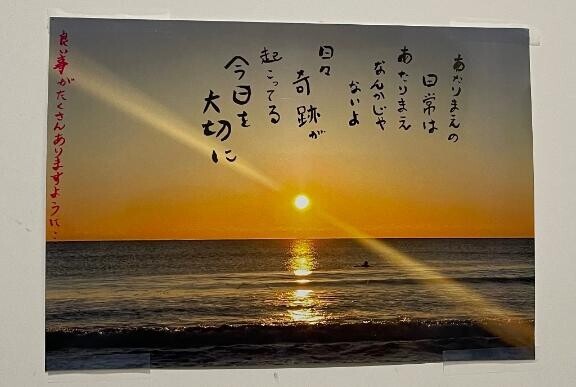 あたりまえの
日常は
あたりまえ
なんかじゃ
ないよ
日々
奇跡が
起こってる
今日を
大切に
良い事がたくさんありますように…